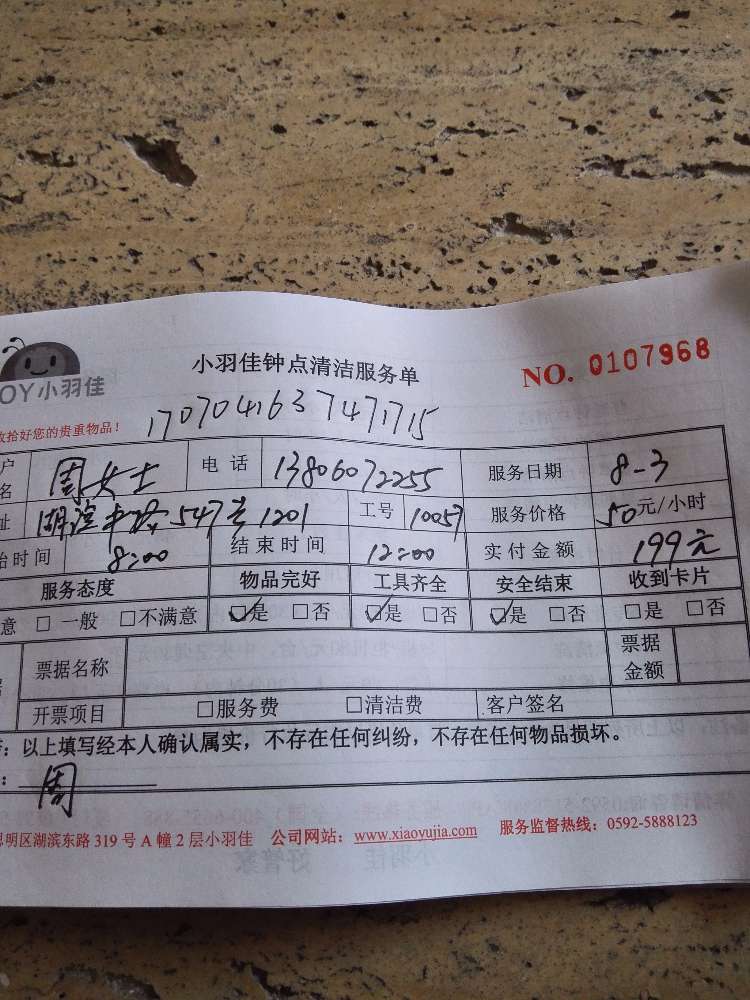 OY小羽佳
小羽佳钟点清洁服务单
NO. 0107968
收拾好您的贵重物品!
1707041637471715
户名 周女士 电话 13806072255 服务日期 8-3
址 湖滨 547号1201 工号 10057 服务价格 50元/小时
始时间 8:00 结束时间 12:00 实付金额 199元
服务态度 物品完好 工具齐全 安全结束 收到卡片
意 □ 一般 □不满意 ☑是 □否 ☑是 □否 ☑是 □否 □是 □否
票据名称 票据金额
开票项目 □服务费 □清洁费 客户签名
:以上填写经本人确认属实,不存在任何纠纷,不存在任何物品损坏。
: 周
思明区湖滨东路 319 号 A 幢 2 层小羽佳 公司网站:www.xiaoyujia.com 服务监督热线:0592-5888123